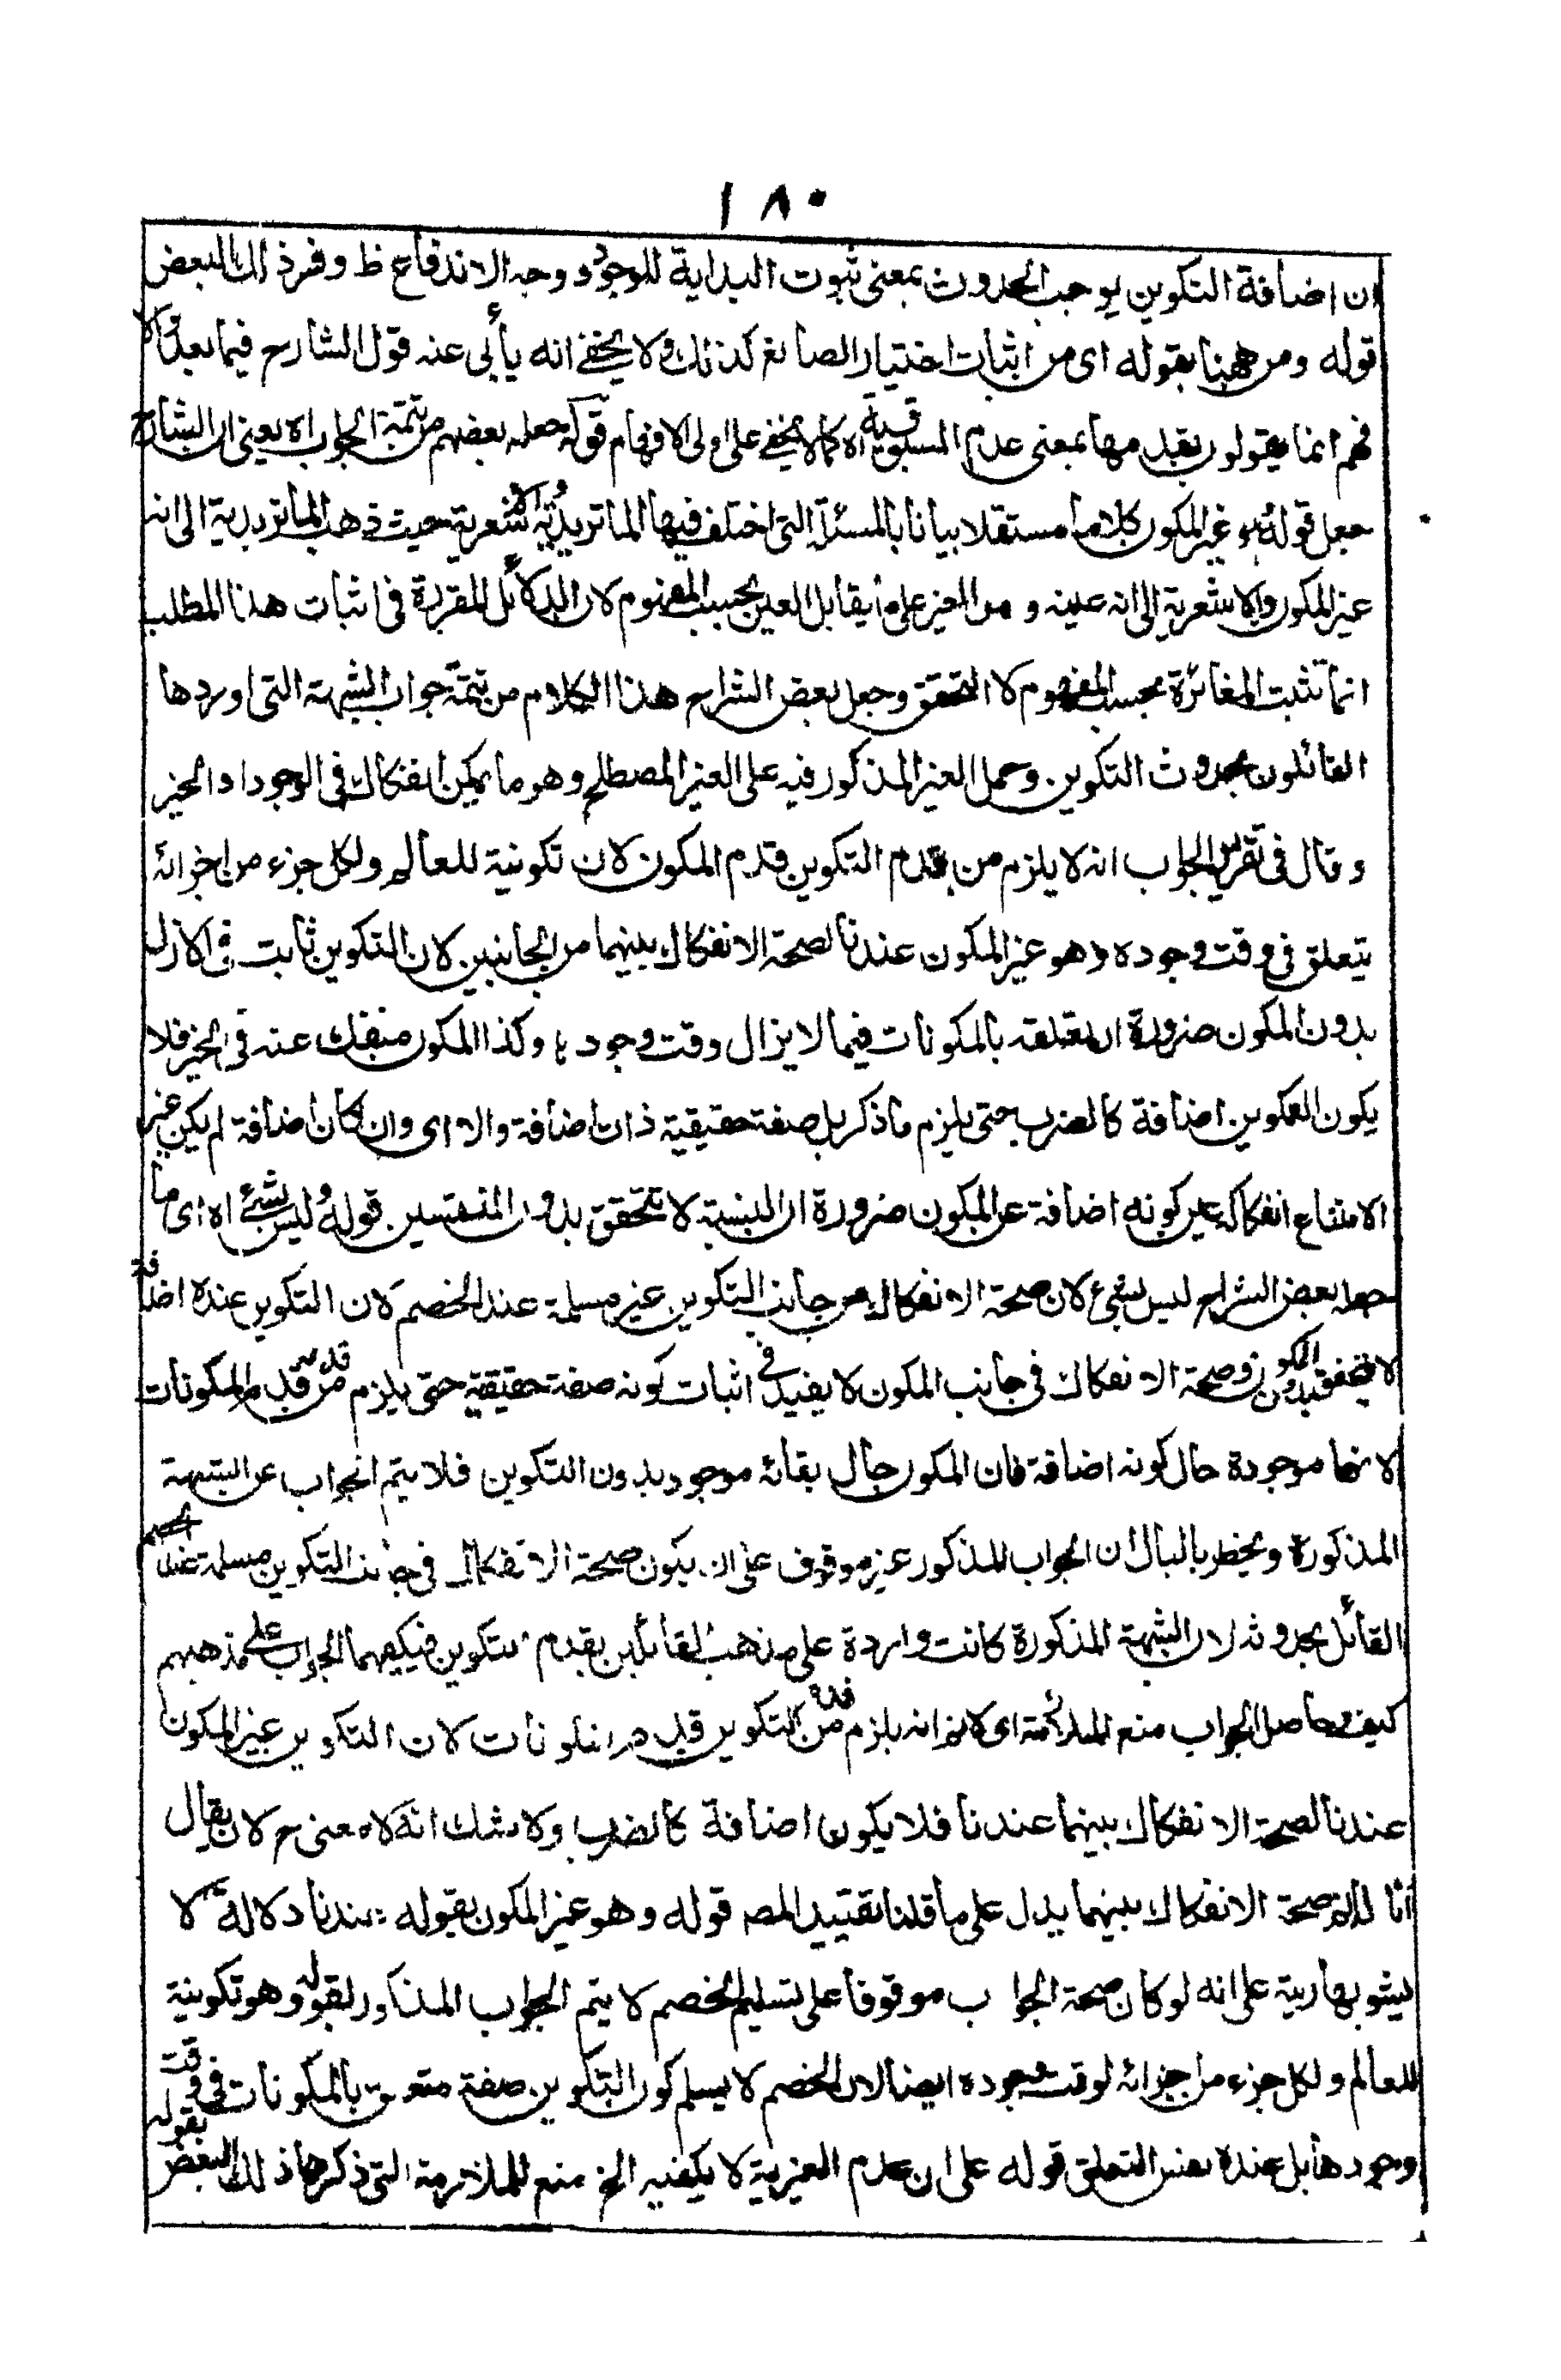 ١٨٠
ان اضافة التكوين يوجب الحدوث بمعنى ثبوت البداية للوجود ووجه الاندفاع ظ وفر ذلك البعض
قوله ومن ههنا بقوله اى من اثبات اختيار الصانع كذلك ولا يخفى انه يأبى عنه قول الشارح فيما بعد والا
فهم انما يقولون بقدمها بمعنى عدم المسبوقية اه كما لا يخفى على اولى الافهام قوله جعله بعضهم من تتمة الجواب اه يعنى ان الشارح
جعل قوله وهو غير المكون كلاما مستقلا بيانا بالمسئلة التى اختلف فيها الماتريدية والاشعرية حيث ذهب الماتريدية الى انه
غير المكون والاشعرية الى انه عينه و الغير على ما يقابل العين بحسب المفهوم لان الدلائل المقررة فى اثبات هذا المطلب
انما تثبت المغائرة بحسب المفهوم لا التحقق وجعل بعض الشراح هذا الكلام من تتمة جواب الشبهة التى اوردها
القائلون بحدوث التكوين وحمل الغير المذكور فيه على الغير المصطلح وهو ما يمكن انفكاك فى الوجود او الحيز
وقال فى تقرير الجواب انه لا يلزم من قدم التكوين قدم المكون لان تكوينية للعالم ولكل جزء من اجزائه
يتعلق فى وقت وجوده وهو غير المكون عندنا لصحة الانفكاك بينهما من الجانبين لان التكوين ثابت فى الازل
بدون المكون ضرورة ان تعلقه بالمكونات فيما لا يزال وقت وجودها وكذا المكون منفك عنه فى الحيز فلا
يكون التكوين اضافة كالضرب حتى يلزم ما ذكر بل صفة حقيقية ذات اضافة والا اى وان كان اضافة لم يكن غير
الامتناع انفكاكه حين كونه اضافة عن المكون ضرورة ان النسبة لا تتحقق بدون المنتسبين قوله وليس بشئ اه اى ما
جعله بعض الشراح ليس بشئ لان صحة الانفكاك من جانب التكوين غير مسلمة عند الخصم لان التكوين عنده اضافة
لا تتحقق بدون المكون وصحة الانفكاك فى جانب المكون لا يفيد فى اثبات كونه صفة حقيقية حتى يلزم من قدمه قدم المكونات
لانها موجودة حال كونه اضافة فان المكون حال بقائه موجود بدون التكوين فلا يتم الجواب عن الشبهة
المذكورة ويخطر بالبال ان الجواب المذكور غير موقوف على ان يكون صحة الانفكاك فى جانب التكوين مسلمة عند الخصم
القائل بحدوثه لان الشبهة المذكورة كانت واردة على مذهب القائلين بقدم التكوين فيكفيهما الجواب على مذهبهم
كيف وحاصل الجواب منع الملازمة اى لا نم انه يلزم من قدم التكوين قدم المكونات لان التكوين غير المكون
عندنا لصحة الانفكاك بينهما عندنا فلا يكون اضافة كالضرب ولا شك انه لا معنى ح لان يقال
انا لا نم صحة الانفكاك بينهما يدل على ما قلنا تقييد المصـ قوله وهو غير المكون بقوله عندنا دلالة لا
يشوبها ريبة على انه لو كان صحة الجواب موقوفا على تسليم الخصم لا يتم الجواب المذكور لقوله وهو تكوينية
للعالم ولكل جزء من اجزائه لوقت وجوده ايضا لان الخصم لا يسلم كون التكوين صفة متعلق بالمكونات فى وقت
وجودها بل عنده نفس التعلق قوله على ان عدم الغيرية لا يكفيه الخ منع للملازمة التى ذكرها ذلك البعض بقوله